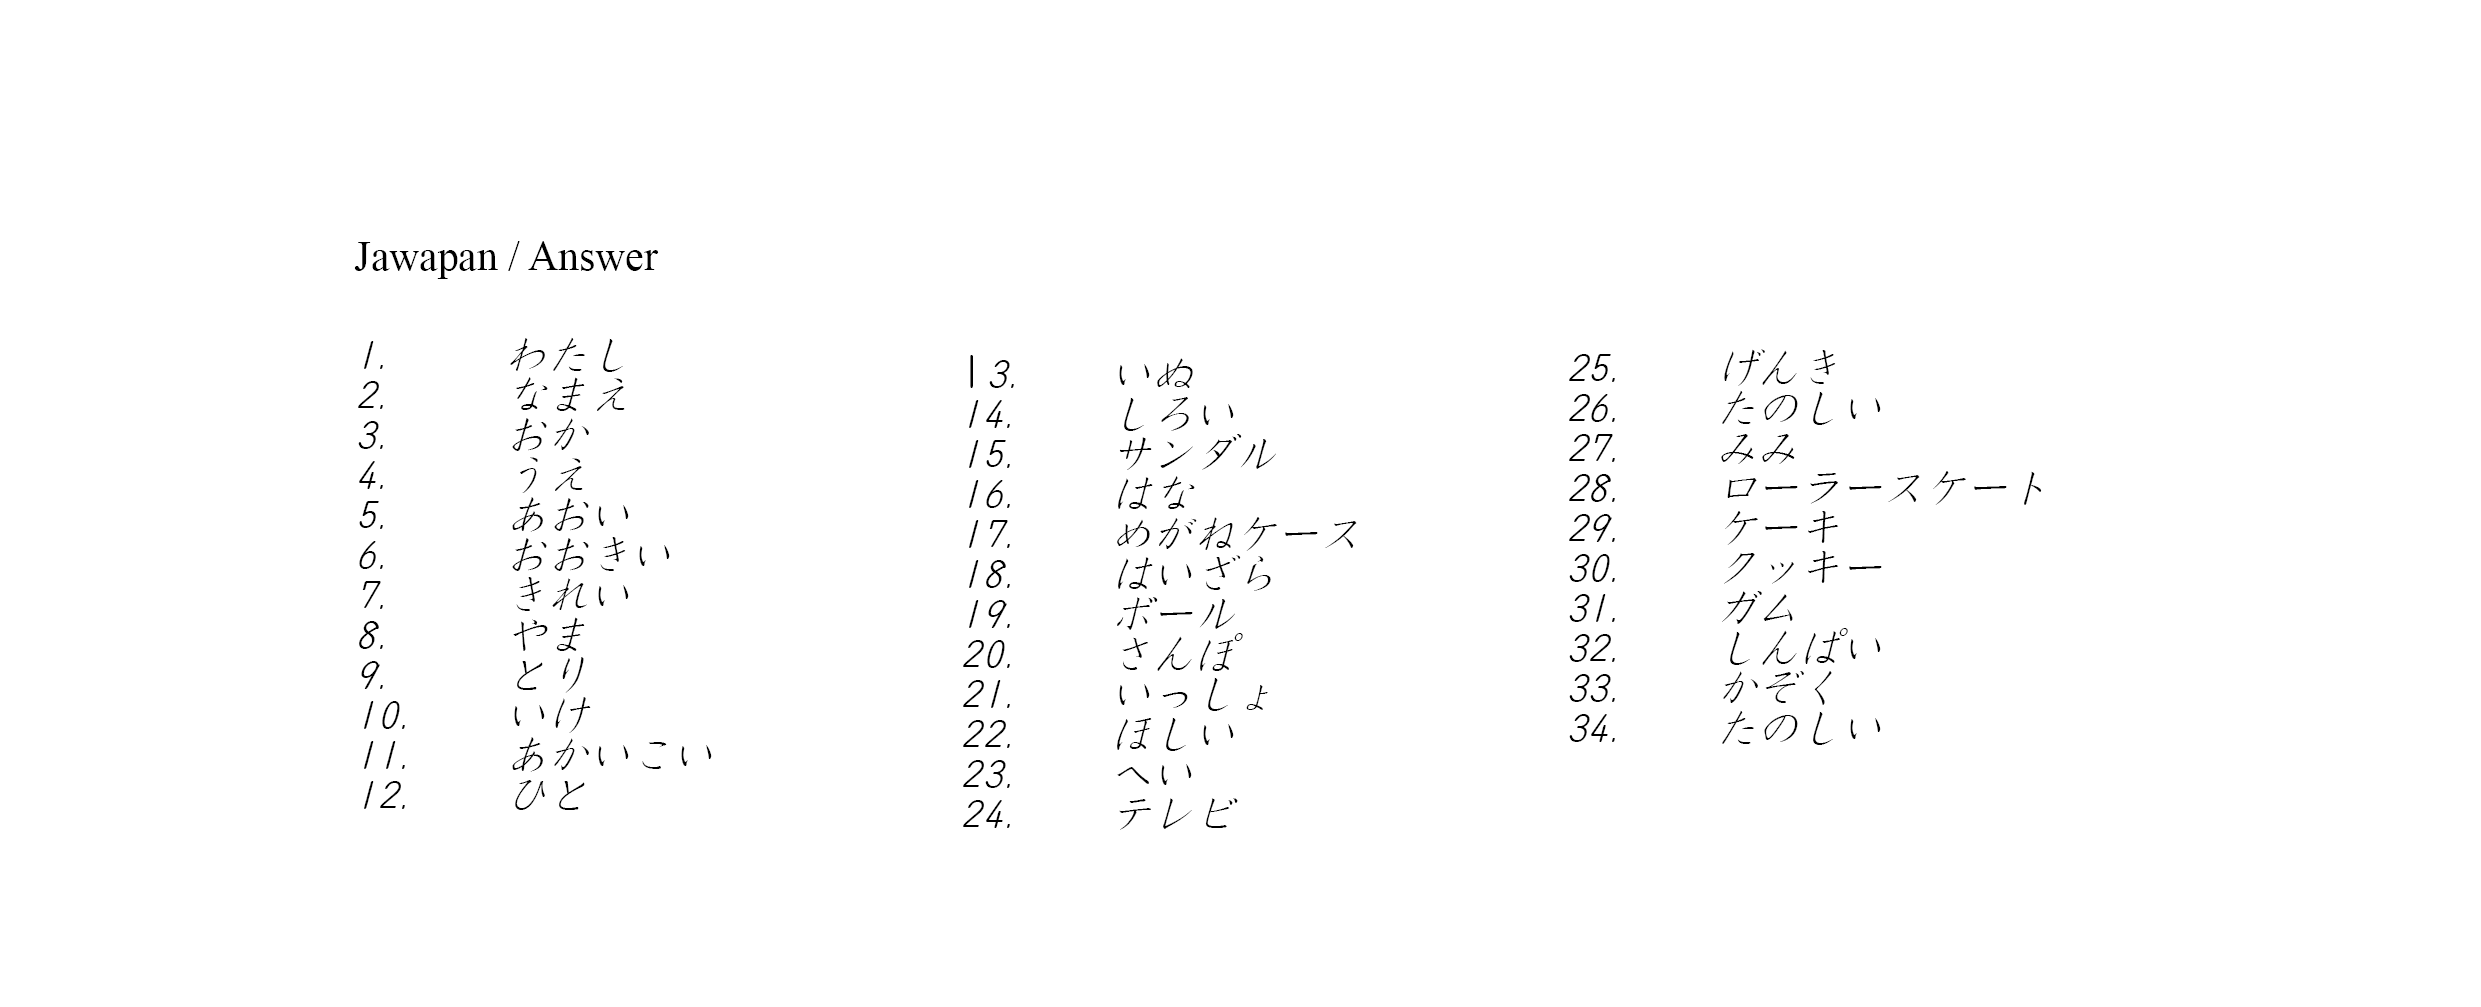 Jawapan / Answer
1. わたし
2. なまえ
3. おか
4. うえ
5. あおい
6. おおきい
7. きれい
8. やま
9. とり
10. いけ
11. あかいこい
12. ひと
13. いぬ
14. しろい
15. サンダル
16. はな
17. めがねケース
18. はいざら
19. ボール
20. さんぽ
21. いっしょ
22. ほしい
23. へい
24. テレビ
25. げんき
26. たのしい
27. みみ
28. ローラースケート
29. ケーキ
30. クッキー
31. ガム
32. しんぱい
33. かぞく
34. たのしい